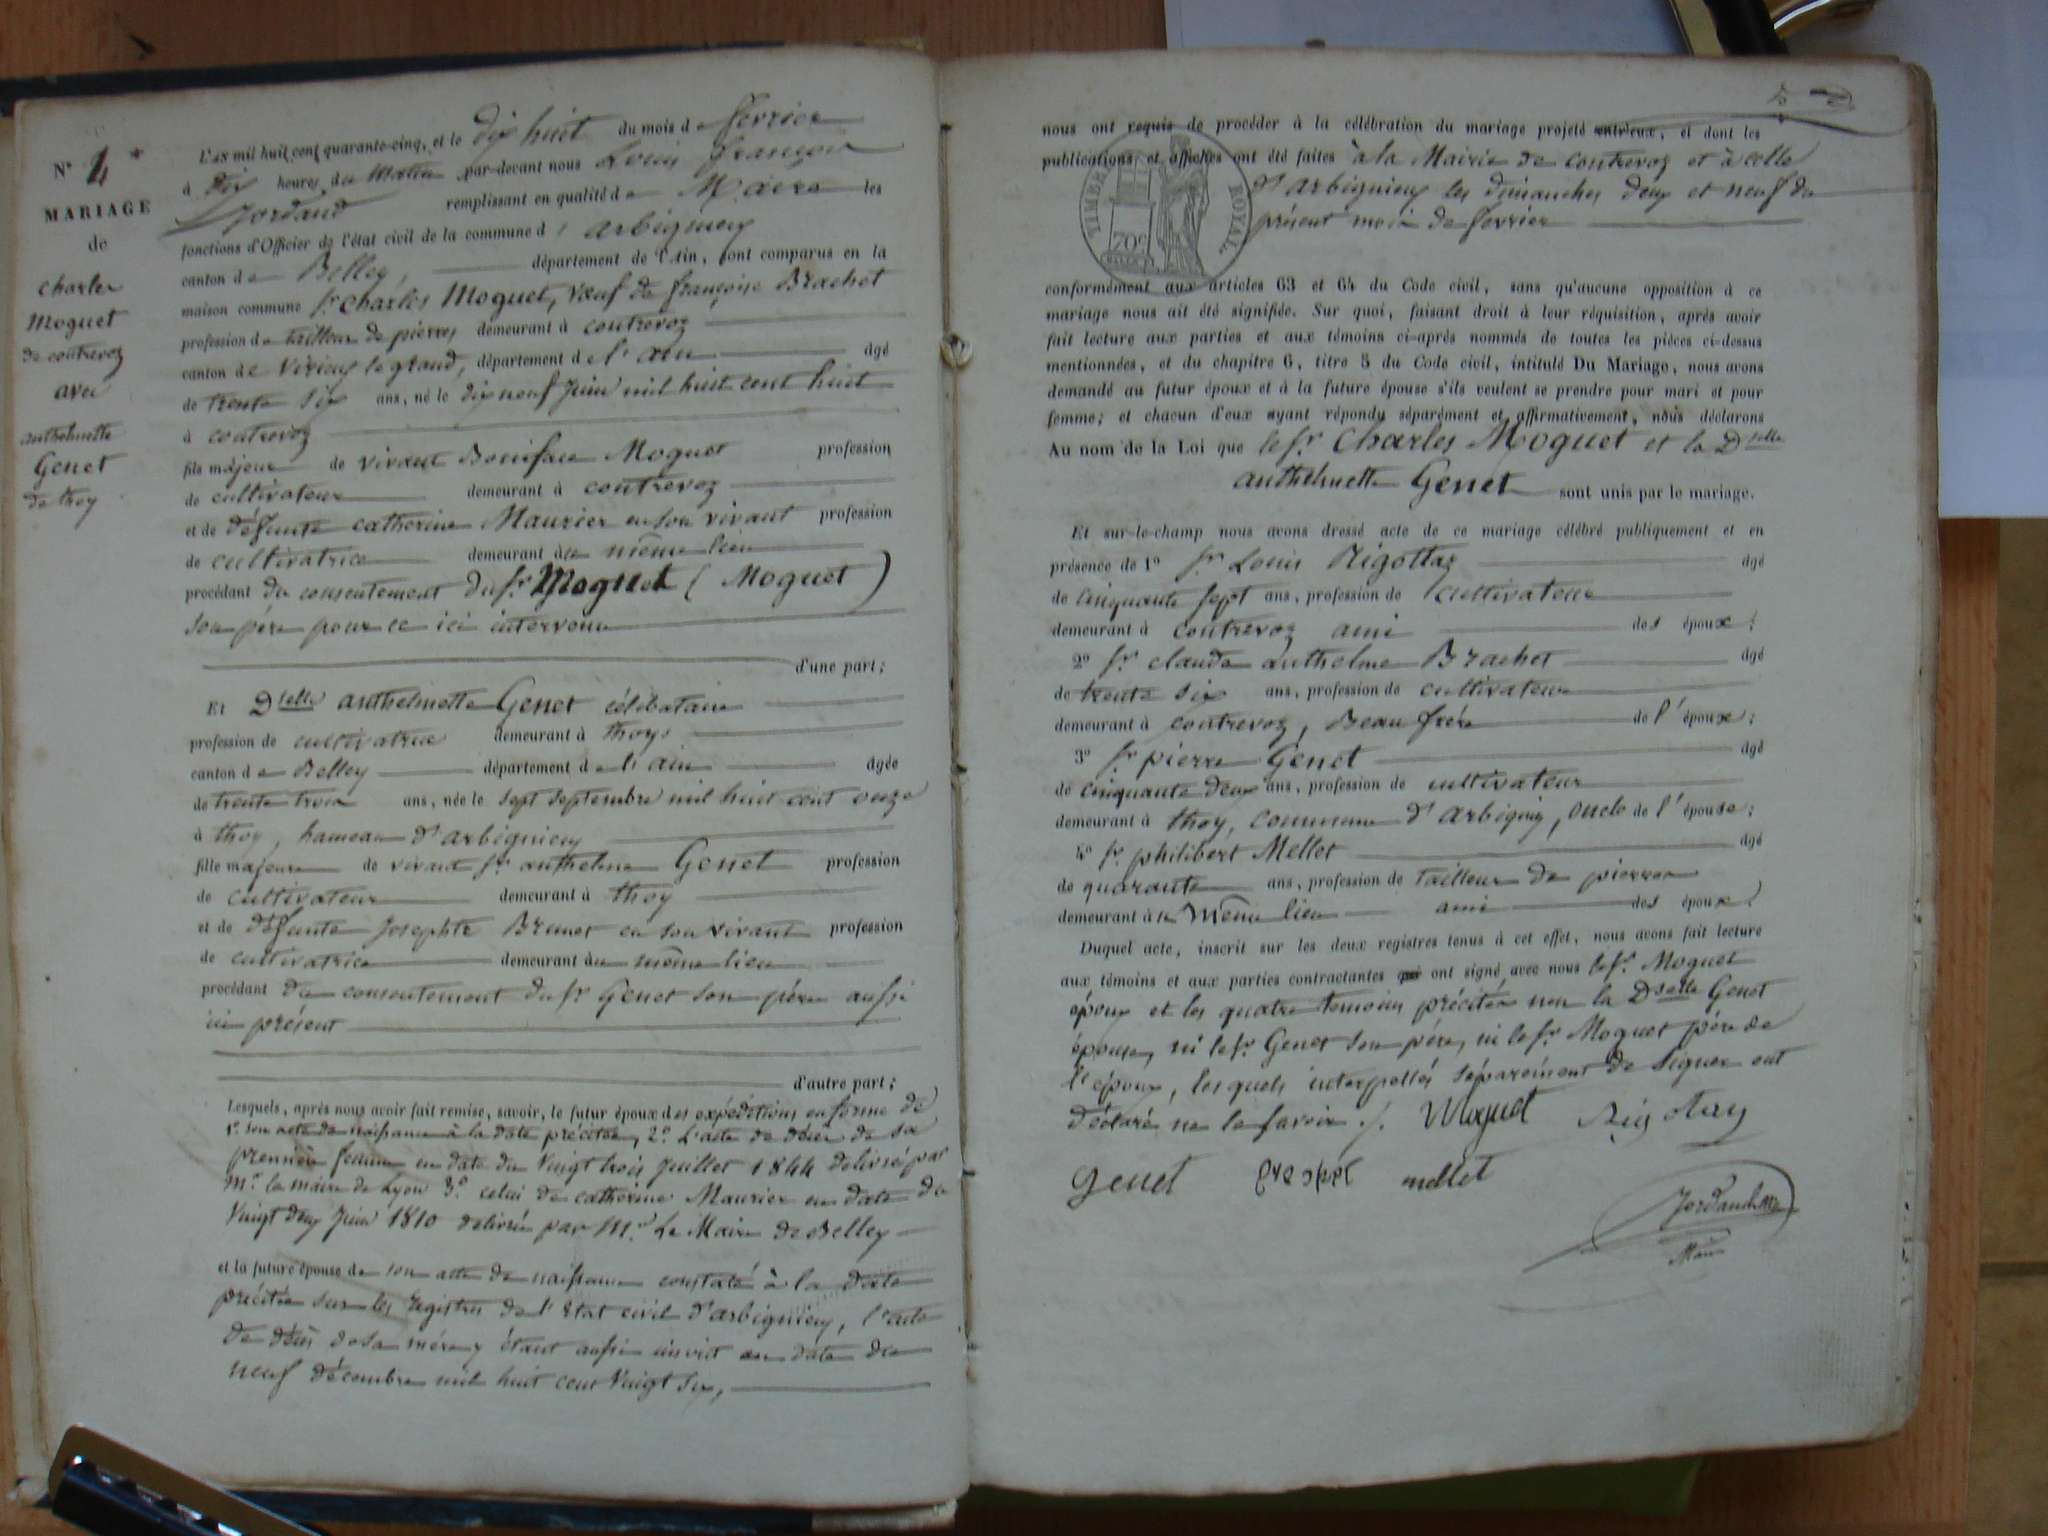 N° 4
MARIAGE
de
charles
Moguet
de contrevoz
avec
anthelmette
Genet
de thoy
L'an mil huit cent quarante-cinq, et le dix huit du mois de fevrier
à dix heures du matin par-devant nous Louis françois
Jordand remplissant en qualité de Maire les
fonctions d'Officier de l'état civil de la commune d' arbignieu
canton de Belley, département de l'Ain, sont comparus en la
maison commune Sr. Charles Moguet, veuf de françoise Brachet
profession de tailleur de pierres demeurant à contrevoz
canton de Virieu le grand, département de l'ain âgé
de trente six ans, né le dix neuf juin mil huit cent huit
à contrevoz
fils majeur de vivant Boniface Moguet profession
de cultivateur demeurant à contrevoz
et de défunte catherine Maurier en son vivant profession
de cultivatrice demeurant au même lieu
procédant du consentement du Sr. Moguet ( Moguet )
son père pour ce ici intervenu
d'une part;
Et Dselle anthelmette Genet célibataire
profession de cultivatrice demeurant à thoys
canton de Belley département de l'ain âgée
de trente trois ans, née le sept septembre mil huit cent onze
à thoy, hameau d'arbignieu
fille majeure de vivant Sr. anthelme Genet profession
de cultivateur demeurant à thoy
et de défunte Josephte Brunet en son vivant profession
de cultivatrice demeurant au même lieu
procédant du consentement du Sr Genet son père aussi
ici présent
d'autre part;
Lesquels, après nous avoir fait remise, savoir, le futur époux des expéditions en forme de
1° son acte de naissance à la date précitée, 2° L'acte de décès de sa
première femme en date du vingt trois juillet 1844 délivré par
Mr. le maire de Lyon 3° celui de catherine Maurier en date du
vingt deux juin 1810 délivré par Mr. Le Maire de Belley
et la future épouse de son acte de naissance constaté à la date
précitée sur les registres de l'état civil d'arbignieu, l'acte
de décès de sa mère y étant aussi inscrit en date du
neuf décembre mil huit cent vingt six,
nous ont requis de procéder à la célébration du mariage projeté entr'eux, et dont les
publications et affiches ont été faites à la Mairie de contrevoz et à celle
d'arbignieu les dimanches deux et neuf du
présent mois de fevrier
TIMBRE ROYAL
70c
conformément aux articles 63 et 64 du Code civil, sans qu'aucune opposition à ce
mariage nous ait été signifiée. Sur quoi, faisant droit à leur réquisition, après avoir
fait lecture aux parties et aux témoins ci-après nommés de toutes les pièces ci-dessus
mentionnées, et du chapitre 6, titre 5 du Code civil, intitulé Du Mariage, nous avons
demandé au futur époux et à la future épouse s'ils veulent se prendre pour mari et pour
femme; et chacun d'eux ayant répondu séparément et affirmativement, nous déclarons
Au nom de la Loi que le Sr. Charles Moguet et la Dselle
anthelmette Genet sont unis par le mariage.
Et sur-le-champ nous avons dressé acte de ce mariage célébré publiquement et en
présence de 1° Sr. Louis Rigottaz âgé
de cinquante sept ans, profession de cultivateur
demeurant à contrevoz ami des époux;
2° Sr. claude anthelme Brachet âgé
de trente six ans, profession de cultivateur
demeurant à contrevoz, Beau frère de l'époux;
3° Sr. pierre Genet âgé
de cinquante deux ans, profession de cultivateur
demeurant à thoy, commune d'arbignieu, oncle de l'épouse;
4° Sr. philibert Mellet âgé
de quarante ans, profession de tailleur de pierres
demeurant au même lieu ami des époux;
Duquel acte, inscrit sur les deux registres tenus à cet effet, nous avons fait lecture
aux témoins et aux parties contractantes qui ont signé avec nous le Sr. Moguet
époux et les quatre temoins précités non la Dselle Genet
épouse, ni le Sr. Genet son père, ni le Sr. Moguet père de
l'époux, lesquels interpellés séparément de signer ont
déclaré ne le savoir. Moguet Rigotay
genet brachet mellet
Jordand
Maire